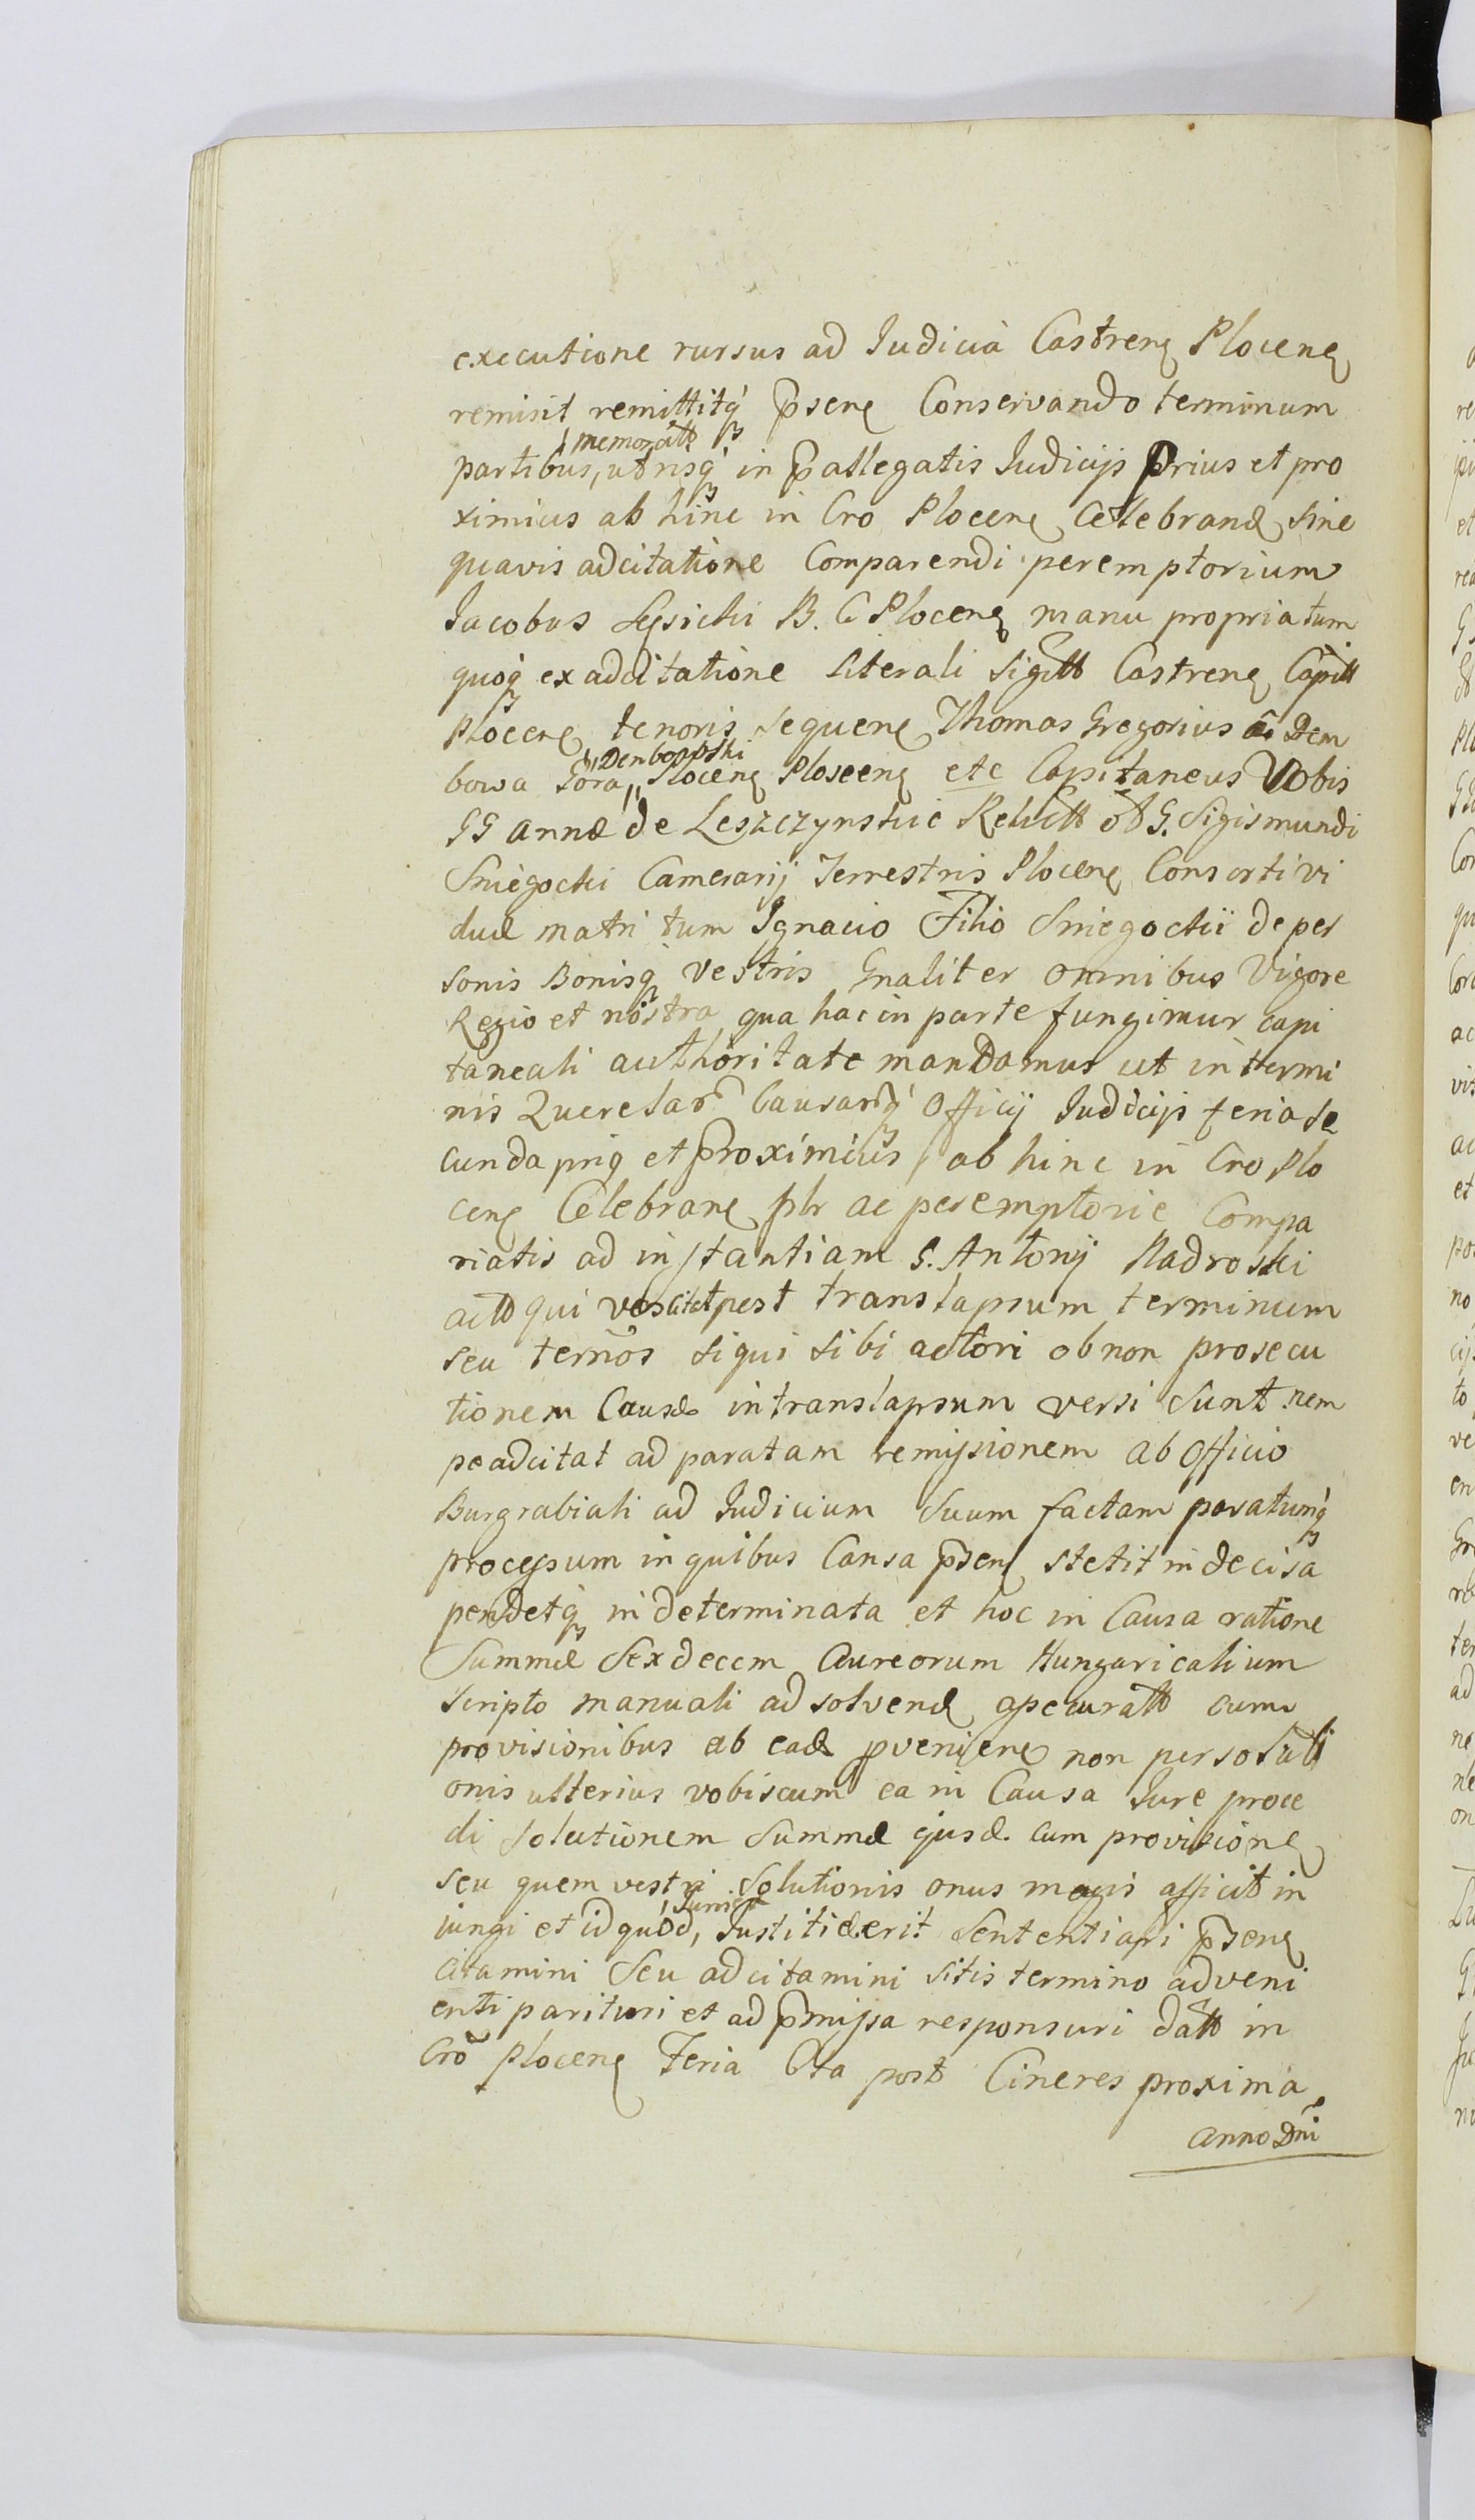 executione rursus ad Judicia Castren Plocen
remisit remittitq́ p̄sen Conservando terminum
memoratt
partibus, utrisq́ in p̄allegatis Judicijs Prius et pro
ximius ab hinc in Cro Plocen Celebrand sine
quavis adcitatione Comparendi peremptorium
Jacobus B. C Plocen manu propria tum
quoq́ ex adcitatione literali sigill Castren Capitt
Plocen tenoris sequen Thomas Gregorius â Dem
Dembowski
bowa Gora Plocen Ploseen etc Capitaneus Vobis
GG annæ de Leszczynskie Relictt G. Sigismundi
Sniegocki Camerarij Terrestris Plocen Consorti vi
duæ matri tum Ignacio Filio Sniegockii de per
sonis Bonisq́ vestris Gnaliter omnibus Vigore
Regio et nostra qua hac in parte fungimur capi
taneali authoritate mandamus ut in termi
nis Querelar Causarq́ Officij Judicijs feria se
cunda priq et proximius ab hinc in Cro Plo
cen Celebran plr ac peremptorie Compa
riatis ad instantiam G. Antonij Nadroski
actt qui vos citat post translapsum terminum
seu termos siqui sibi actori ob non prosecu
tionem Causæ in translapsum versi sunt nem
pe adcitat ad paratam remissionem ab Officio
Burgrabiali ad Judicium Suum factam paratumq́
processum in quibus Causa p̄sen stetit in decisa
pendetq́ indeterminata et hoc in Causa ratione
Summæ Sexdecem Aureorum Hungaricalium
Scripto manuali ad solvend assecuratt cum
provisionibus ab ead provenien non persoluti
onis ulterius vobiscum ea in Causa Jure proce
di solutionem Summæ ejusd. cum provision
seu quem vestri Solutionis onus magis afficit in
iungi et id quod, Justitiæ erit Sententiari p̄sen
Citamini Seu adcitamini sitis termino adveni
enti parituri et ad p̄missa responsuri datt in
Cro Plocen Feria post Cineres proxima
Anno Dni